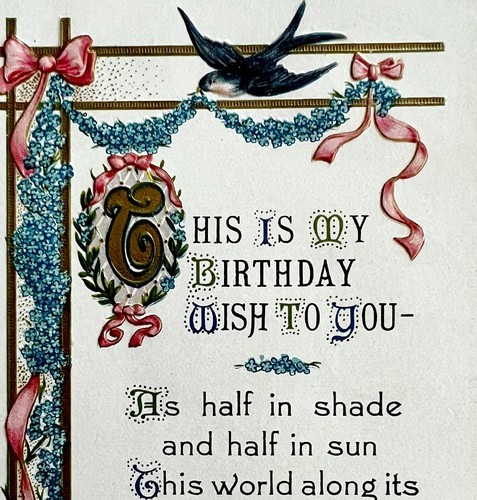 THIS IS MY
BIRTHDAY
WISH TO YOU-
As half in shade
and half in sun
This world along its